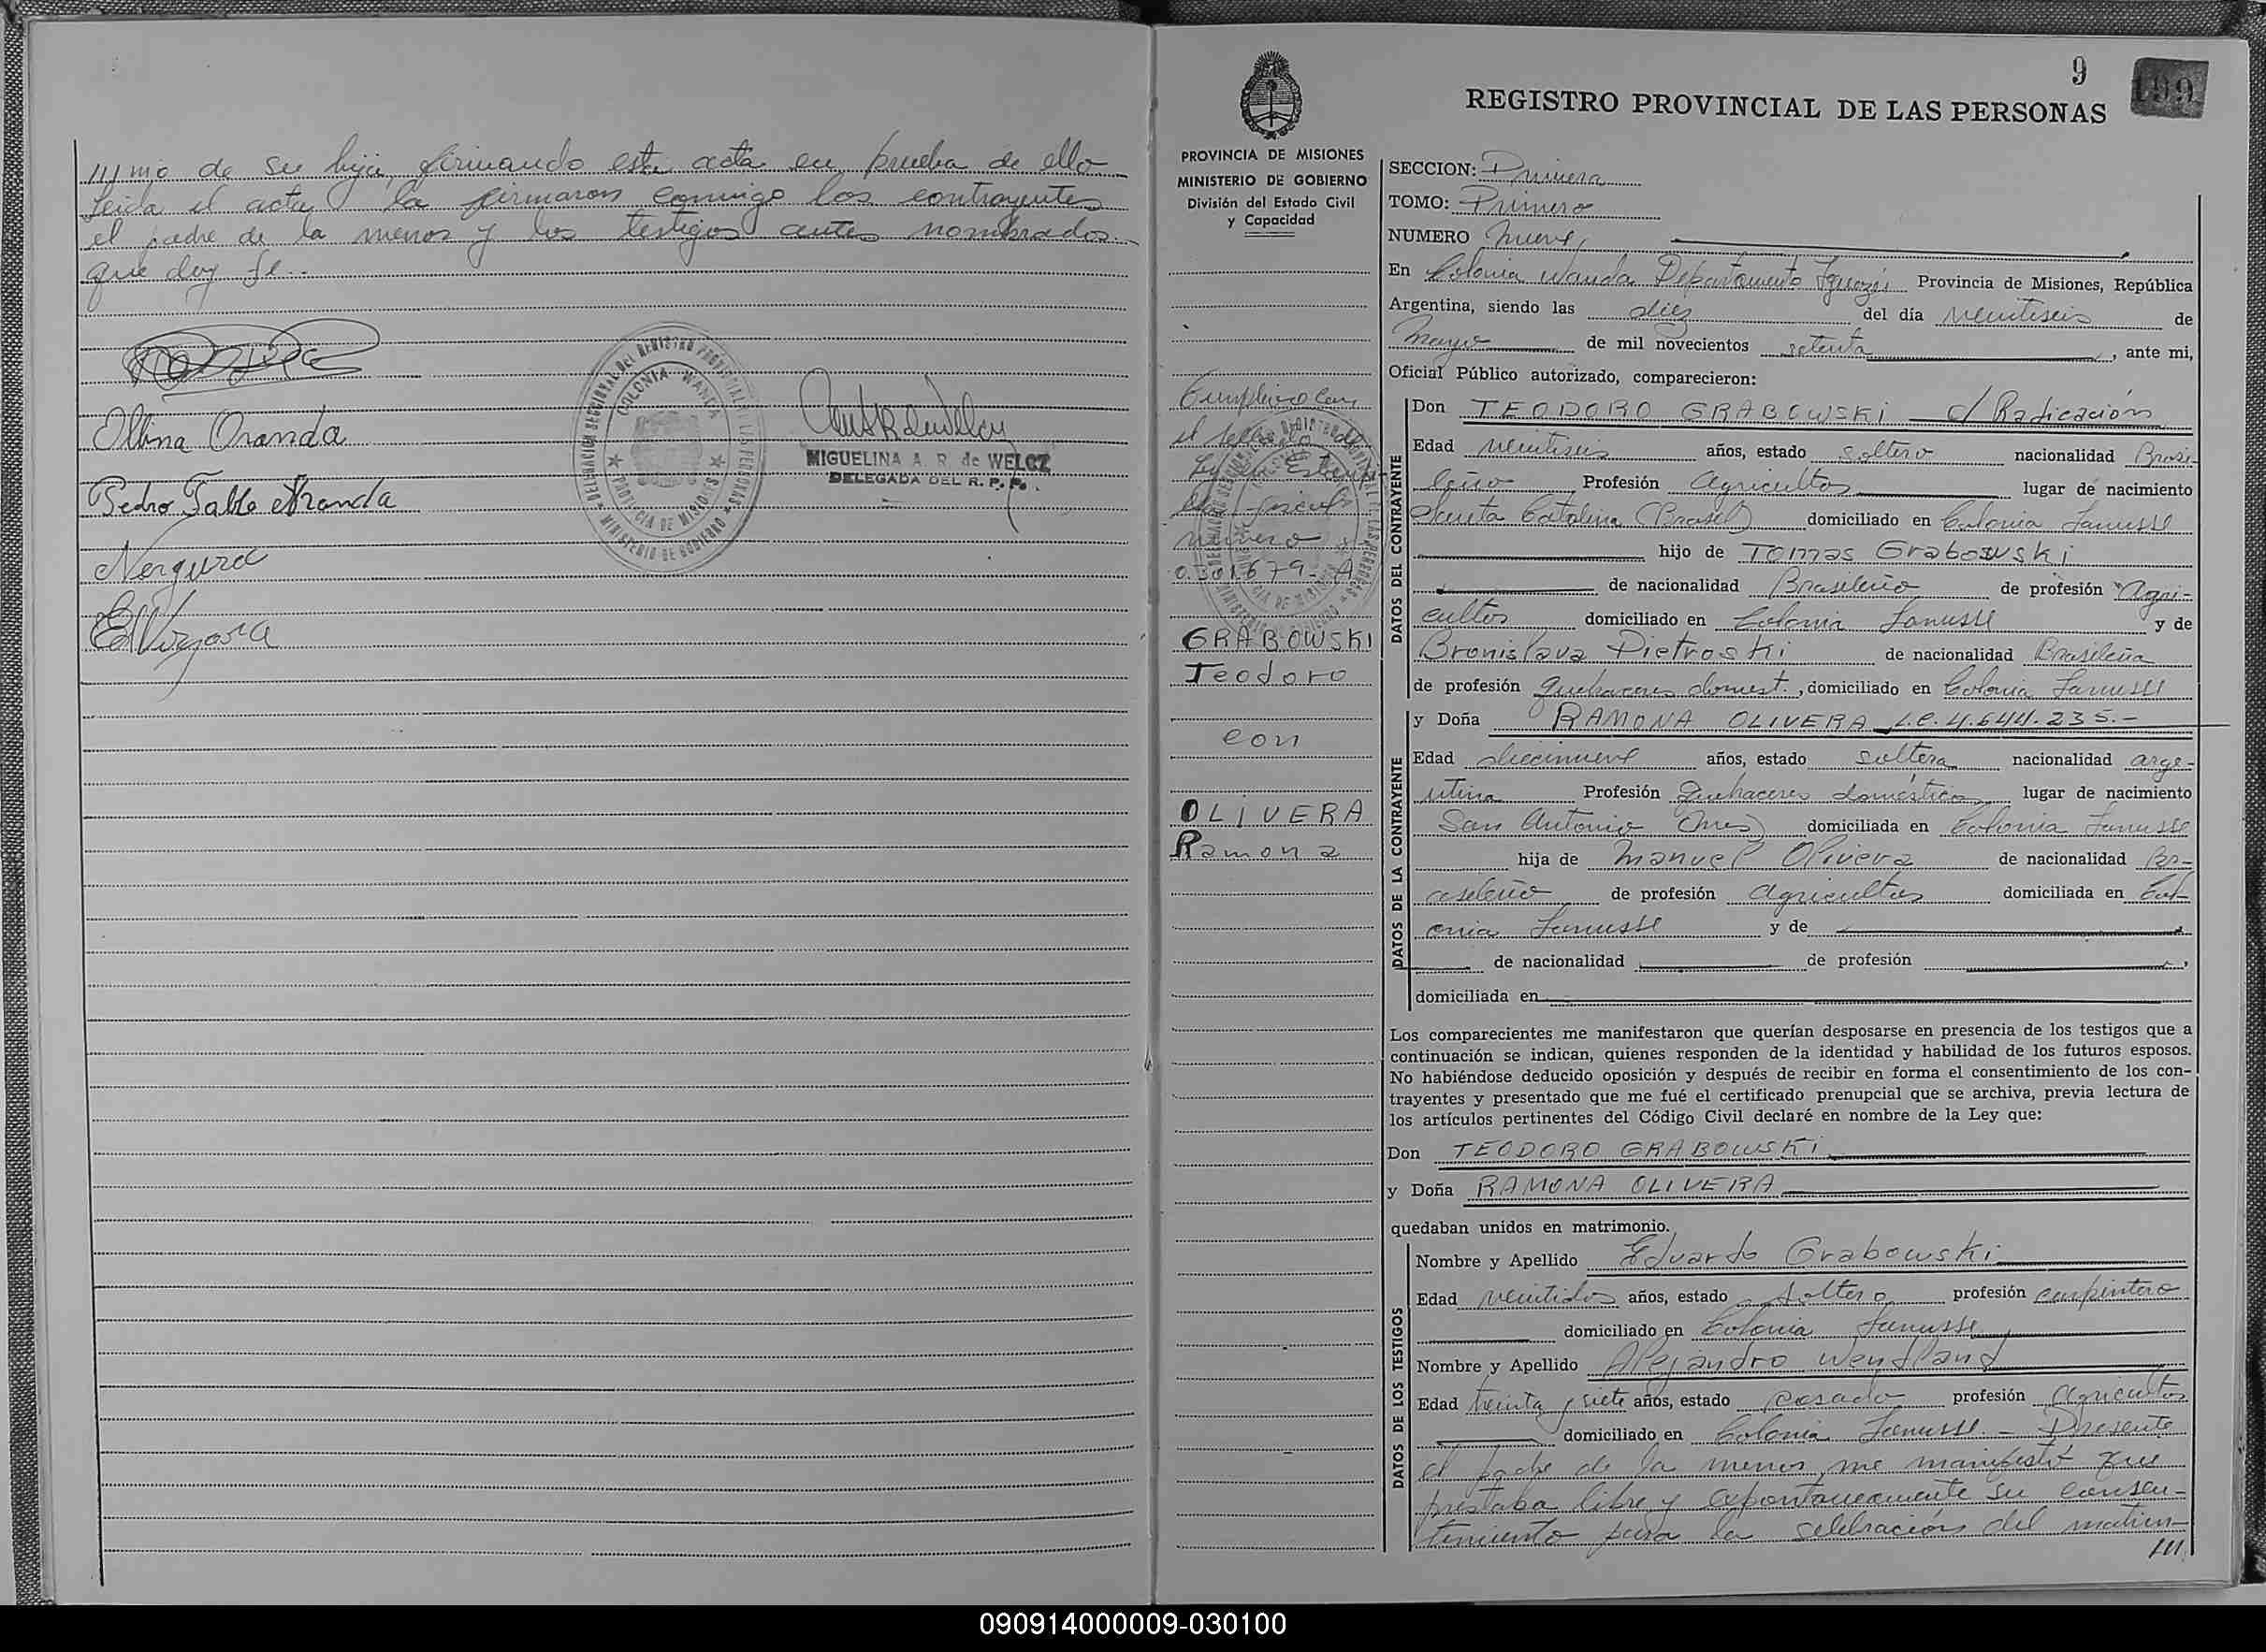 ///nio de su hija, firmando esta acta en prueba de ello
Leida el acta la firmaron conmigo los contrayentes
el padre de la menor y los testigos antes nombrados.
que doy fe.-
Olbina Aranda
Pedro Pablo Aranda
Vergara
E Vergara
DELEGACION SECCIONAL DEL REGISTRO PROVINCIAL DE LAS PERSONAS
COLONIA WANDA
PROVINCIA DE MISIONES
MINISTERIO DE GOBIERNO
MIGUELINA A. R. de WELCZ
DELEGADA DEL R. P. P.
9
199
REGISTRO PROVINCIAL DE LAS PERSONAS
PROVINCIA DE MISIONES
MINISTERIO DE GOBIERNO
División del Estado Civil
y Capacidad
Cumplido con
el sellado de
Ley en Estampi-
lla fiscal
número
0.301679-A
GRABOWSKI
Teodoro
con
OLIVERA
Ramona
SECCION: Primera
TOMO: Primero
NUMERO nueve,
En Colonia Wanda Departamento Iguazú Provincia de Misiones, República
Argentina, siendo las diez del día veintiseis de
Mayo de mil novecientos setenta, ante mi,
Oficial Público autorizado, comparecieron:
DATOS DEL CONTRAYENTE
Don TEODORO GRABOWSKI c/ Radicación
Edad veintiseis años, estado soltero nacionalidad Brasi-
leño Profesión Agricultor lugar de nacimiento
Santa Catalina (Brasil) domiciliado en Colonia Lanusse
hijo de Tomas Grabowski
de nacionalidad Brasileño de profesión Agri-
cultor domiciliado en Colonia Lanusse y de
Bronislava Pietroski de nacionalidad Brasileña
de profesión quehaceres domest., domiciliado en Colonia Lanusse
DATOS DE LA CONTRAYENTE
y Doña RAMONA OLIVERA L.C. 4.644.235.-
Edad diecinueve años, estado soltera nacionalidad arge-
ntina Profesión Quehaceres domésticos lugar de nacimiento
San Antonio (Mnes) domiciliada en Colonia Lanusse
hija de Manuel Olivera de nacionalidad Br-
asileño de profesión Agricultor domiciliada en Col-
onia Lanusse y de
de nacionalidad de profesión
domiciliada en
Los comparecientes me manifestaron que querían desposarse en presencia de los testigos que a
continuación se indican, quienes responden de la identidad y habilidad de los futuros esposos.
No habiéndose deducido oposición y después de recibir en forma el consentimiento de los con-
trayentes y presentado que me fué el certificado prenupcial que se archiva, previa lectura de
los artículos pertinentes del Código Civil declaré en nombre de la Ley que:
Don TEODORO GRABOWSKI
y Doña RAMONA OLIVERA
quedaban unidos en matrimonio.
DATOS DE LOS TESTIGOS
Nombre y Apellido Eduardo Grabowski
Edad veintidos años, estado soltero profesión carpintero
domiciliado en Colonia Lanusse
Nombre y Apellido Alejandro Wendland
Edad treinta y siete años, estado casado profesión agricultor
domiciliado en Colonia Lanusse. - Presente
el padre de la menor, me manifestó que
prestaba libre y expontaneamente su consen-
timiento para la selebración del matrim-
///
090914000009-030100